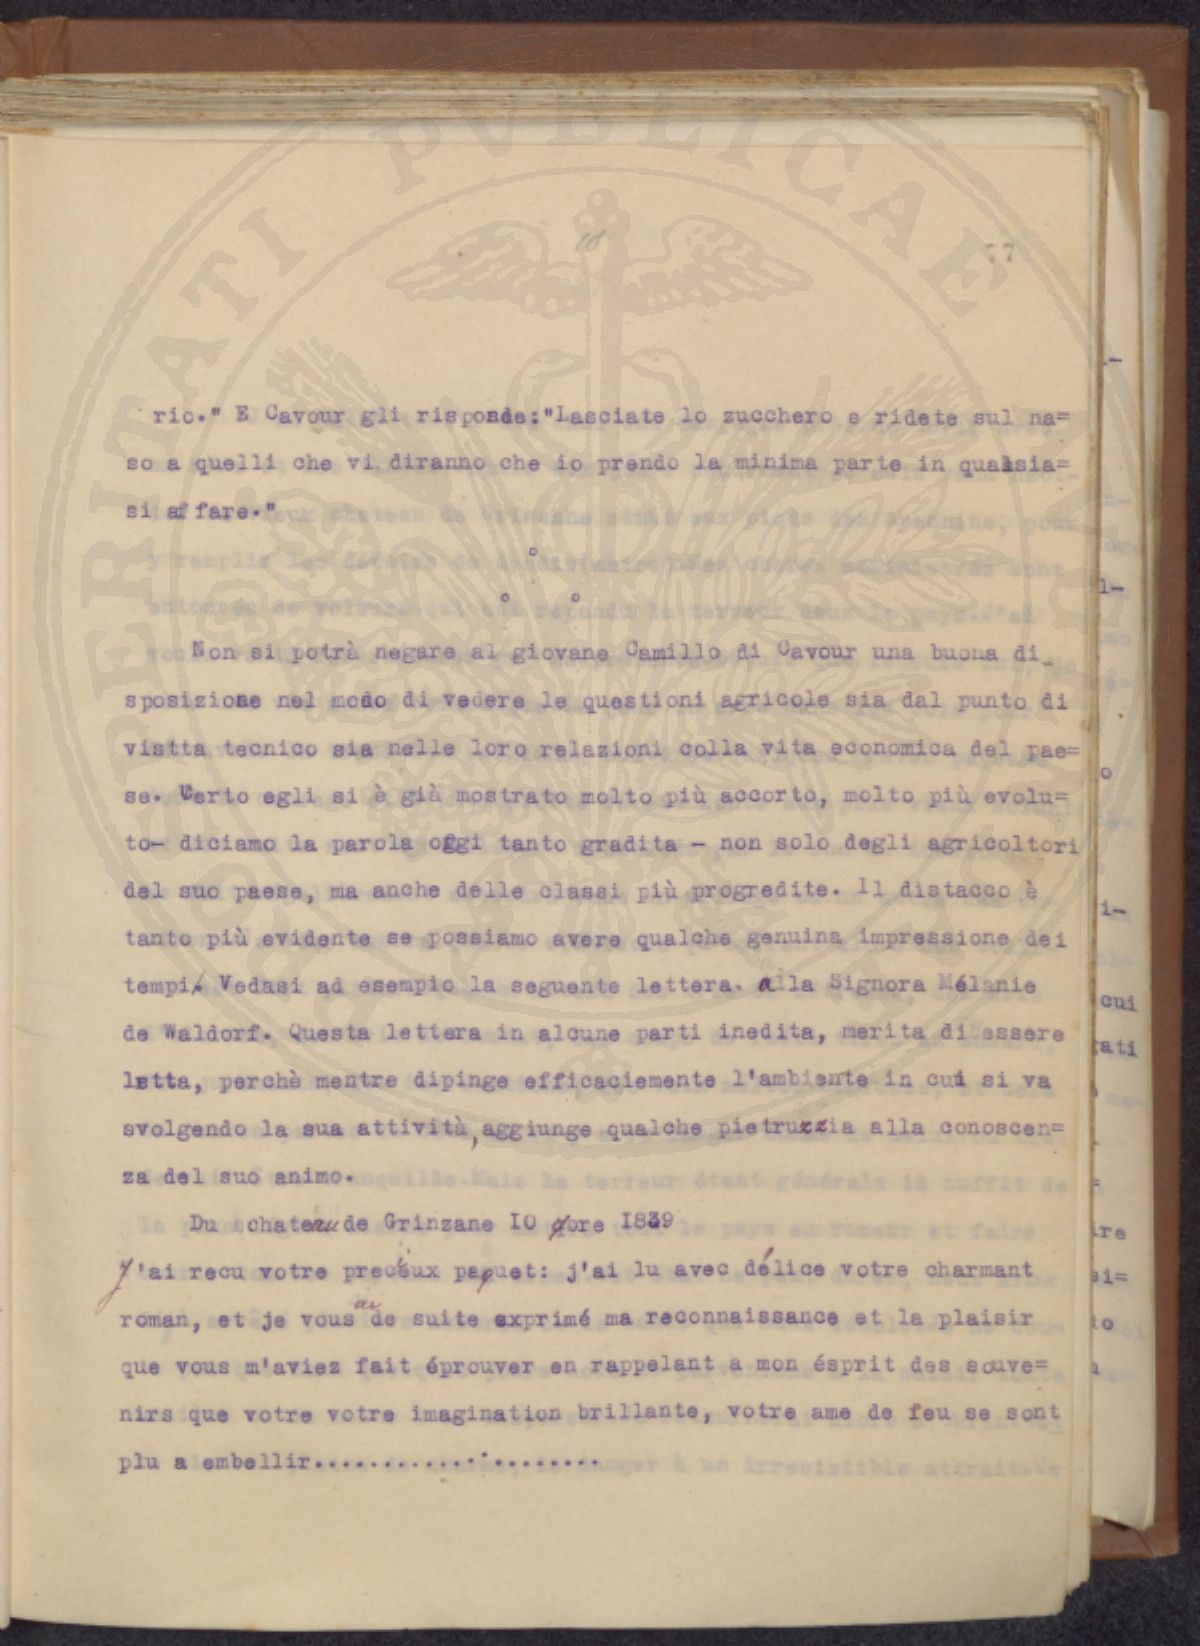 77
rio." E Cavour gli risponde:"Lasciate lo zucchero e ridete sul na=
so a quelli che vi diranno che io prendo la minima parte in qualsia=
si affare."
°
° °
Non si potrà negare al giovane Camillo di Cavour una buona di_
sposizione nel modo di vedere le questioni agricole sia dal punto di
vistta tecnico sia nelle loro relazioni colla vita economica del pae=
se. Certo egli si è già mostrato molto più accorto, molto più evolu=
to- diciamo la parola oggi tanto gradita - non solo degli agricoltori
del suo paese, ma anche delle classi più progredite. Il distacco è
tanto più evidente se possiamo avere qualche genuina impressione dei
tempi. Vedasi ad esempio la seguente lettera. alla Signora Mélanie
de Waldorf. Questa lettera in alcune parti inedita, merita di essere
letta, perchè mentre dipinge efficaciemente l'ambiente in cui si va
svolgendo la sua attività, aggiunge qualche pietruzzia alla conoscen=
za del suo animo.
Du chateau de Grinzane IO 9bre I839
J'ai recu votre precieux paquet: j'ai lu avec délice votre charmant
roman, et je vous ai de suite exprimé ma reconnaissance et la plaisir
que vous m'aviez fait éprouver en rappelant a mon ésprit des souve=
nirs que votre votre imagination brillante, votre ame de feu se sont
plu a embellir.....................